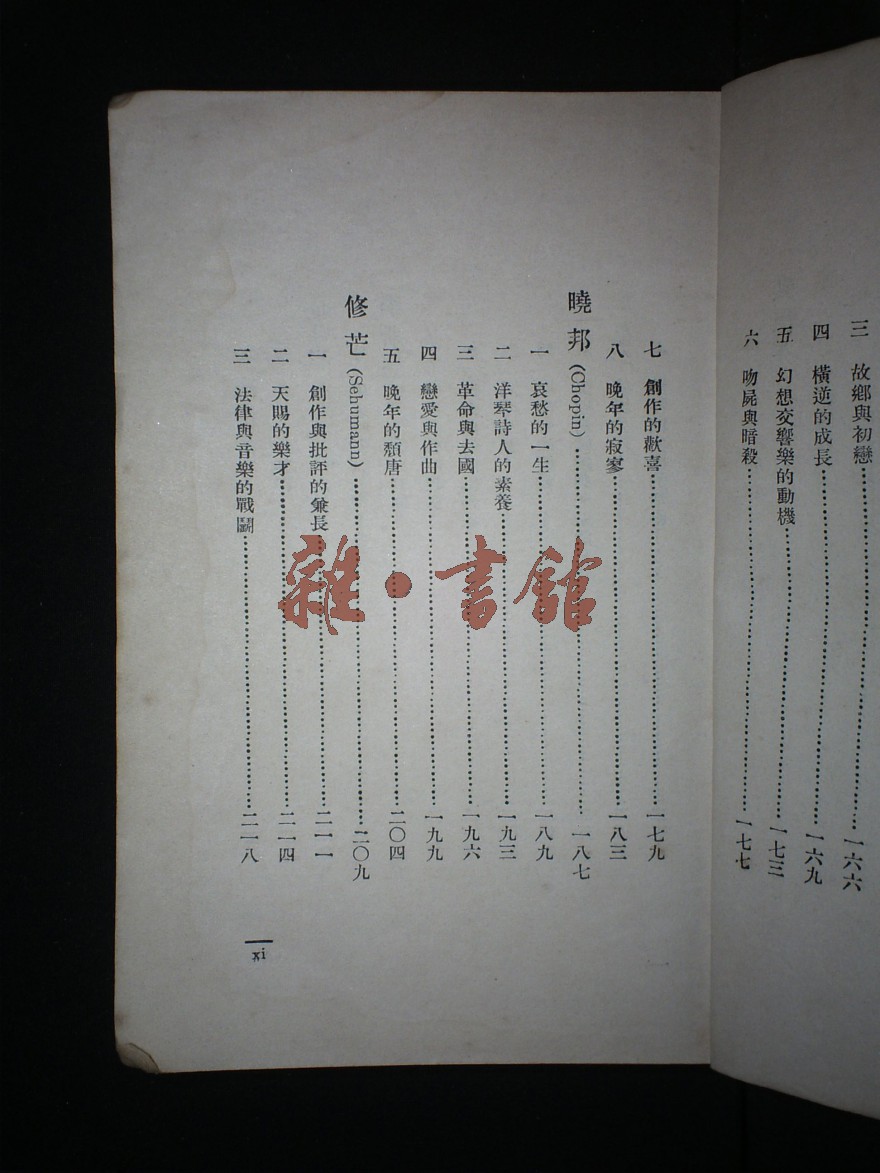 三　故鄉與初戀……一六六
四　橫逆的成長……一六九
五　幻想交響樂的動機……一七三
六　吻屍與暗殺……一七七
七　創作的歡喜……一七九
八　晚年的寂寥……一八三
曉邦 (Chopin)……一八七
一　哀愁的一生……一八九
二　洋琴詩人的素養……一九三
三　革命與去國……一九六
四　戀愛與作曲……一九九
五　晚年的頹唐……二〇四
修芒 (Sehumann)……二〇九
一　創作與批評的兼長……二一一
二　天賜的樂才……二一四
三　法律與音樂的戰鬪……二一八
xi
雜·書館